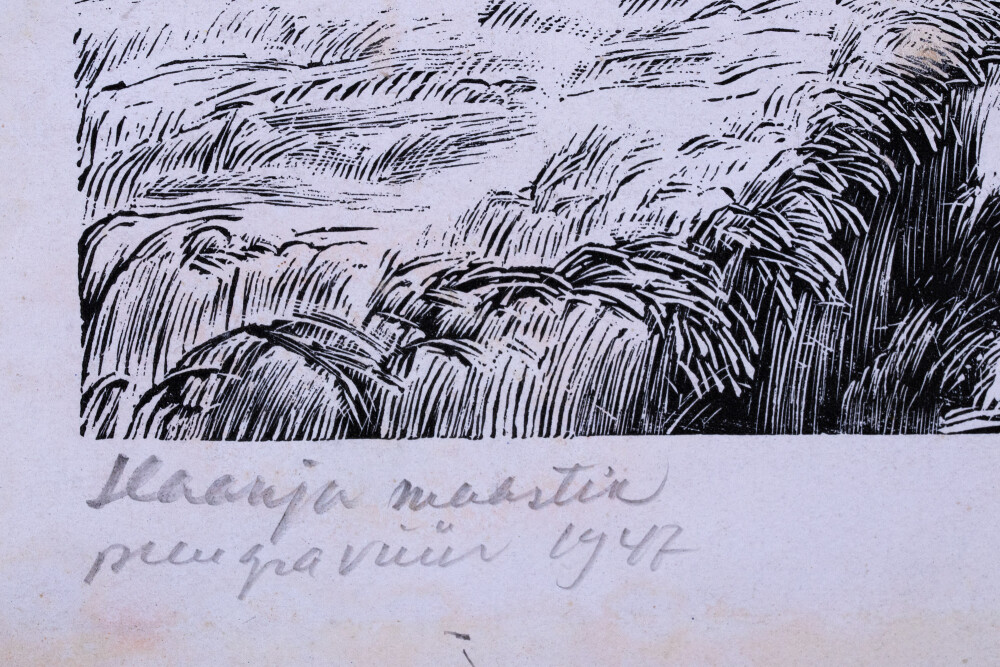 Haanja maastik
puugravüür 1947